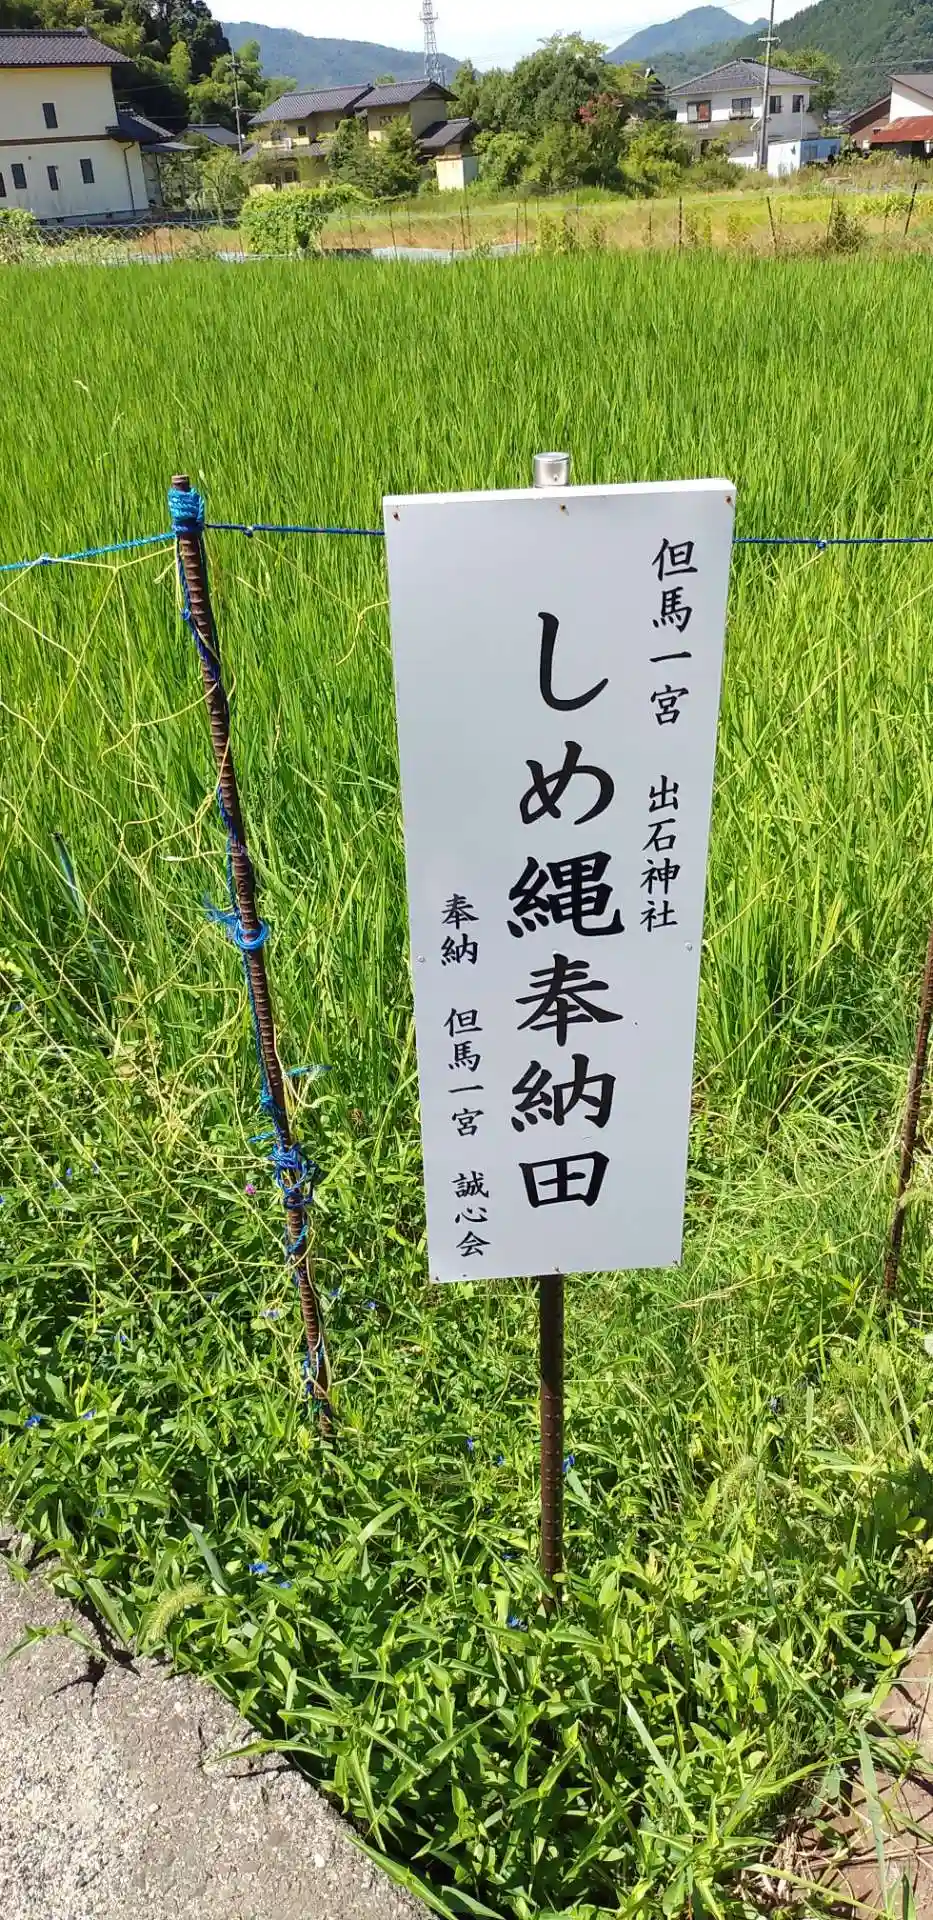 但馬一宮 出石神社
しめ縄奉納田
奉納 但馬一宮 誠心会